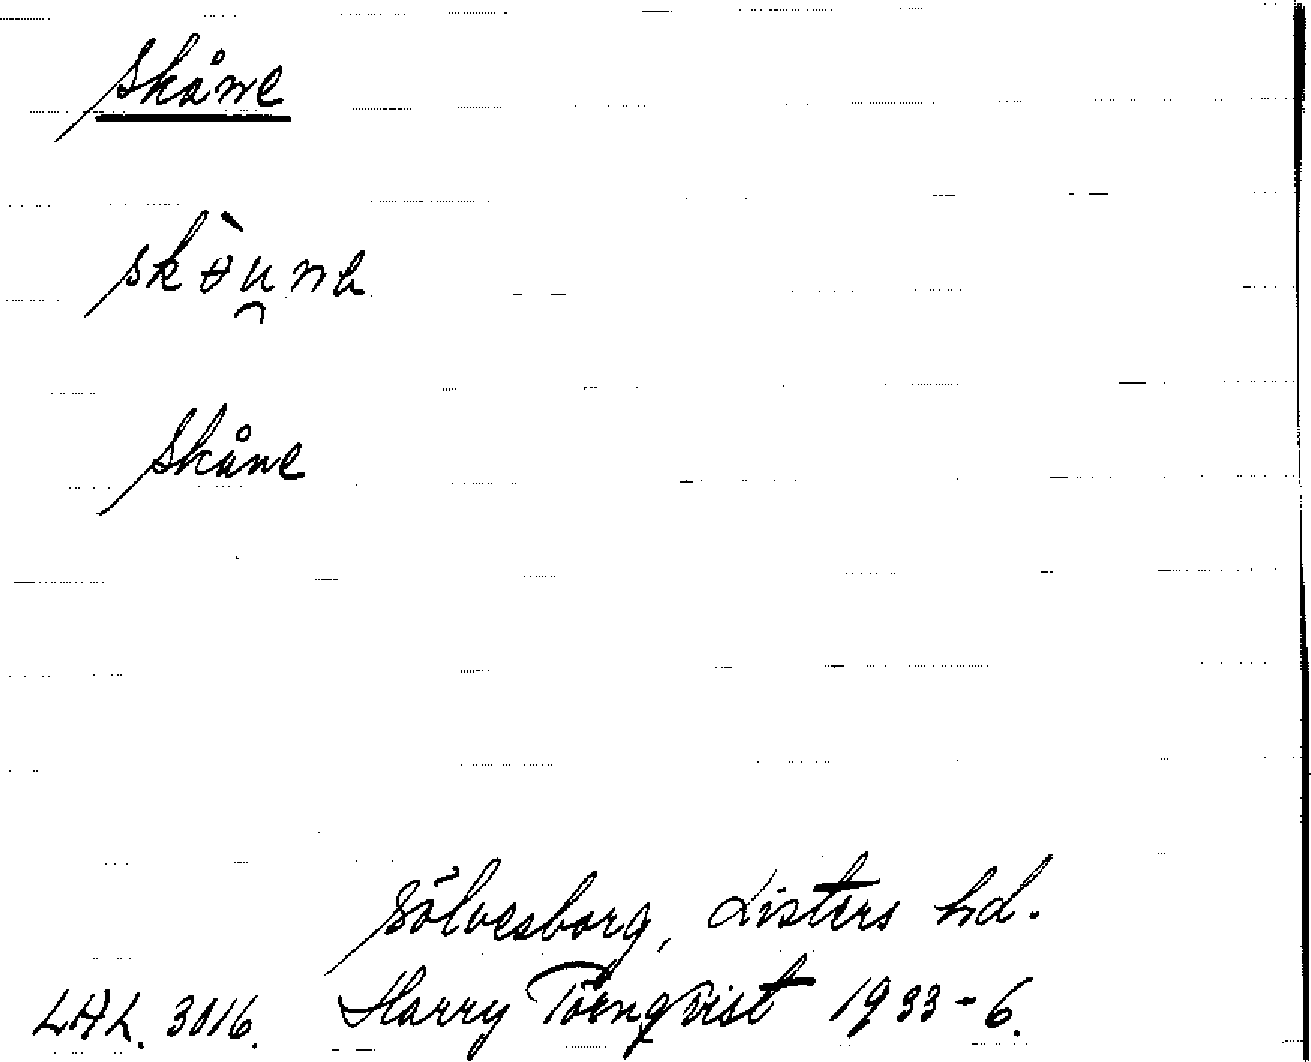 skåne
skåne
Sölvesborg, Listers hd.
LAL. 3016. Harry Törnqvist 1933-6.